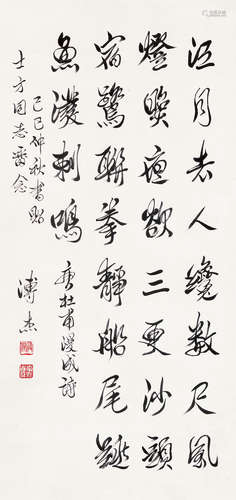 江月去人纔數尺風
燈照夜欲三更沙頭
宿鷺聯拳靜船尾跳
魚潑剌鳴 唐杜甫漫成詩
己巳仲秋書貽
士方同志留念
溥杰